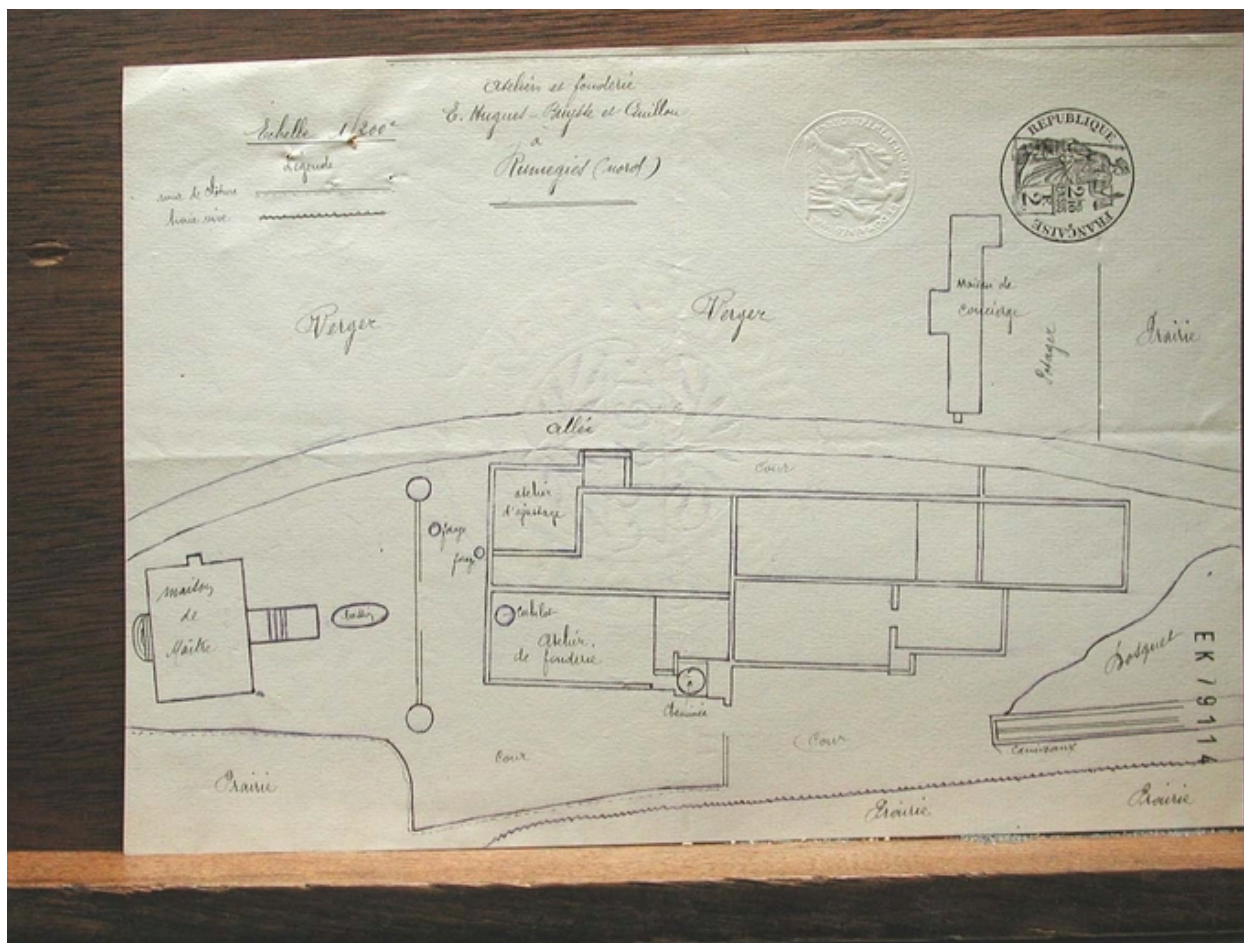 Echelle 1/200e
Légende
mur de clôture
haie vive
Ateliers et fonderie
E. Hugues-Buyste et Cuillou
à
Rumegies (nord)
REPUBLIQUE
FRANÇAISE
Verger
Verger
Maison de
concierge
Potager
Prairie
allée
Cour
atelier
d'ajustage
forage
forage
maison
de
Maître
bassin
Cubilot
Atelier
de fonderie
Cheminée
Bosquet
EK 79114
Cour
Cour
Prairie
Prairie
Prairie